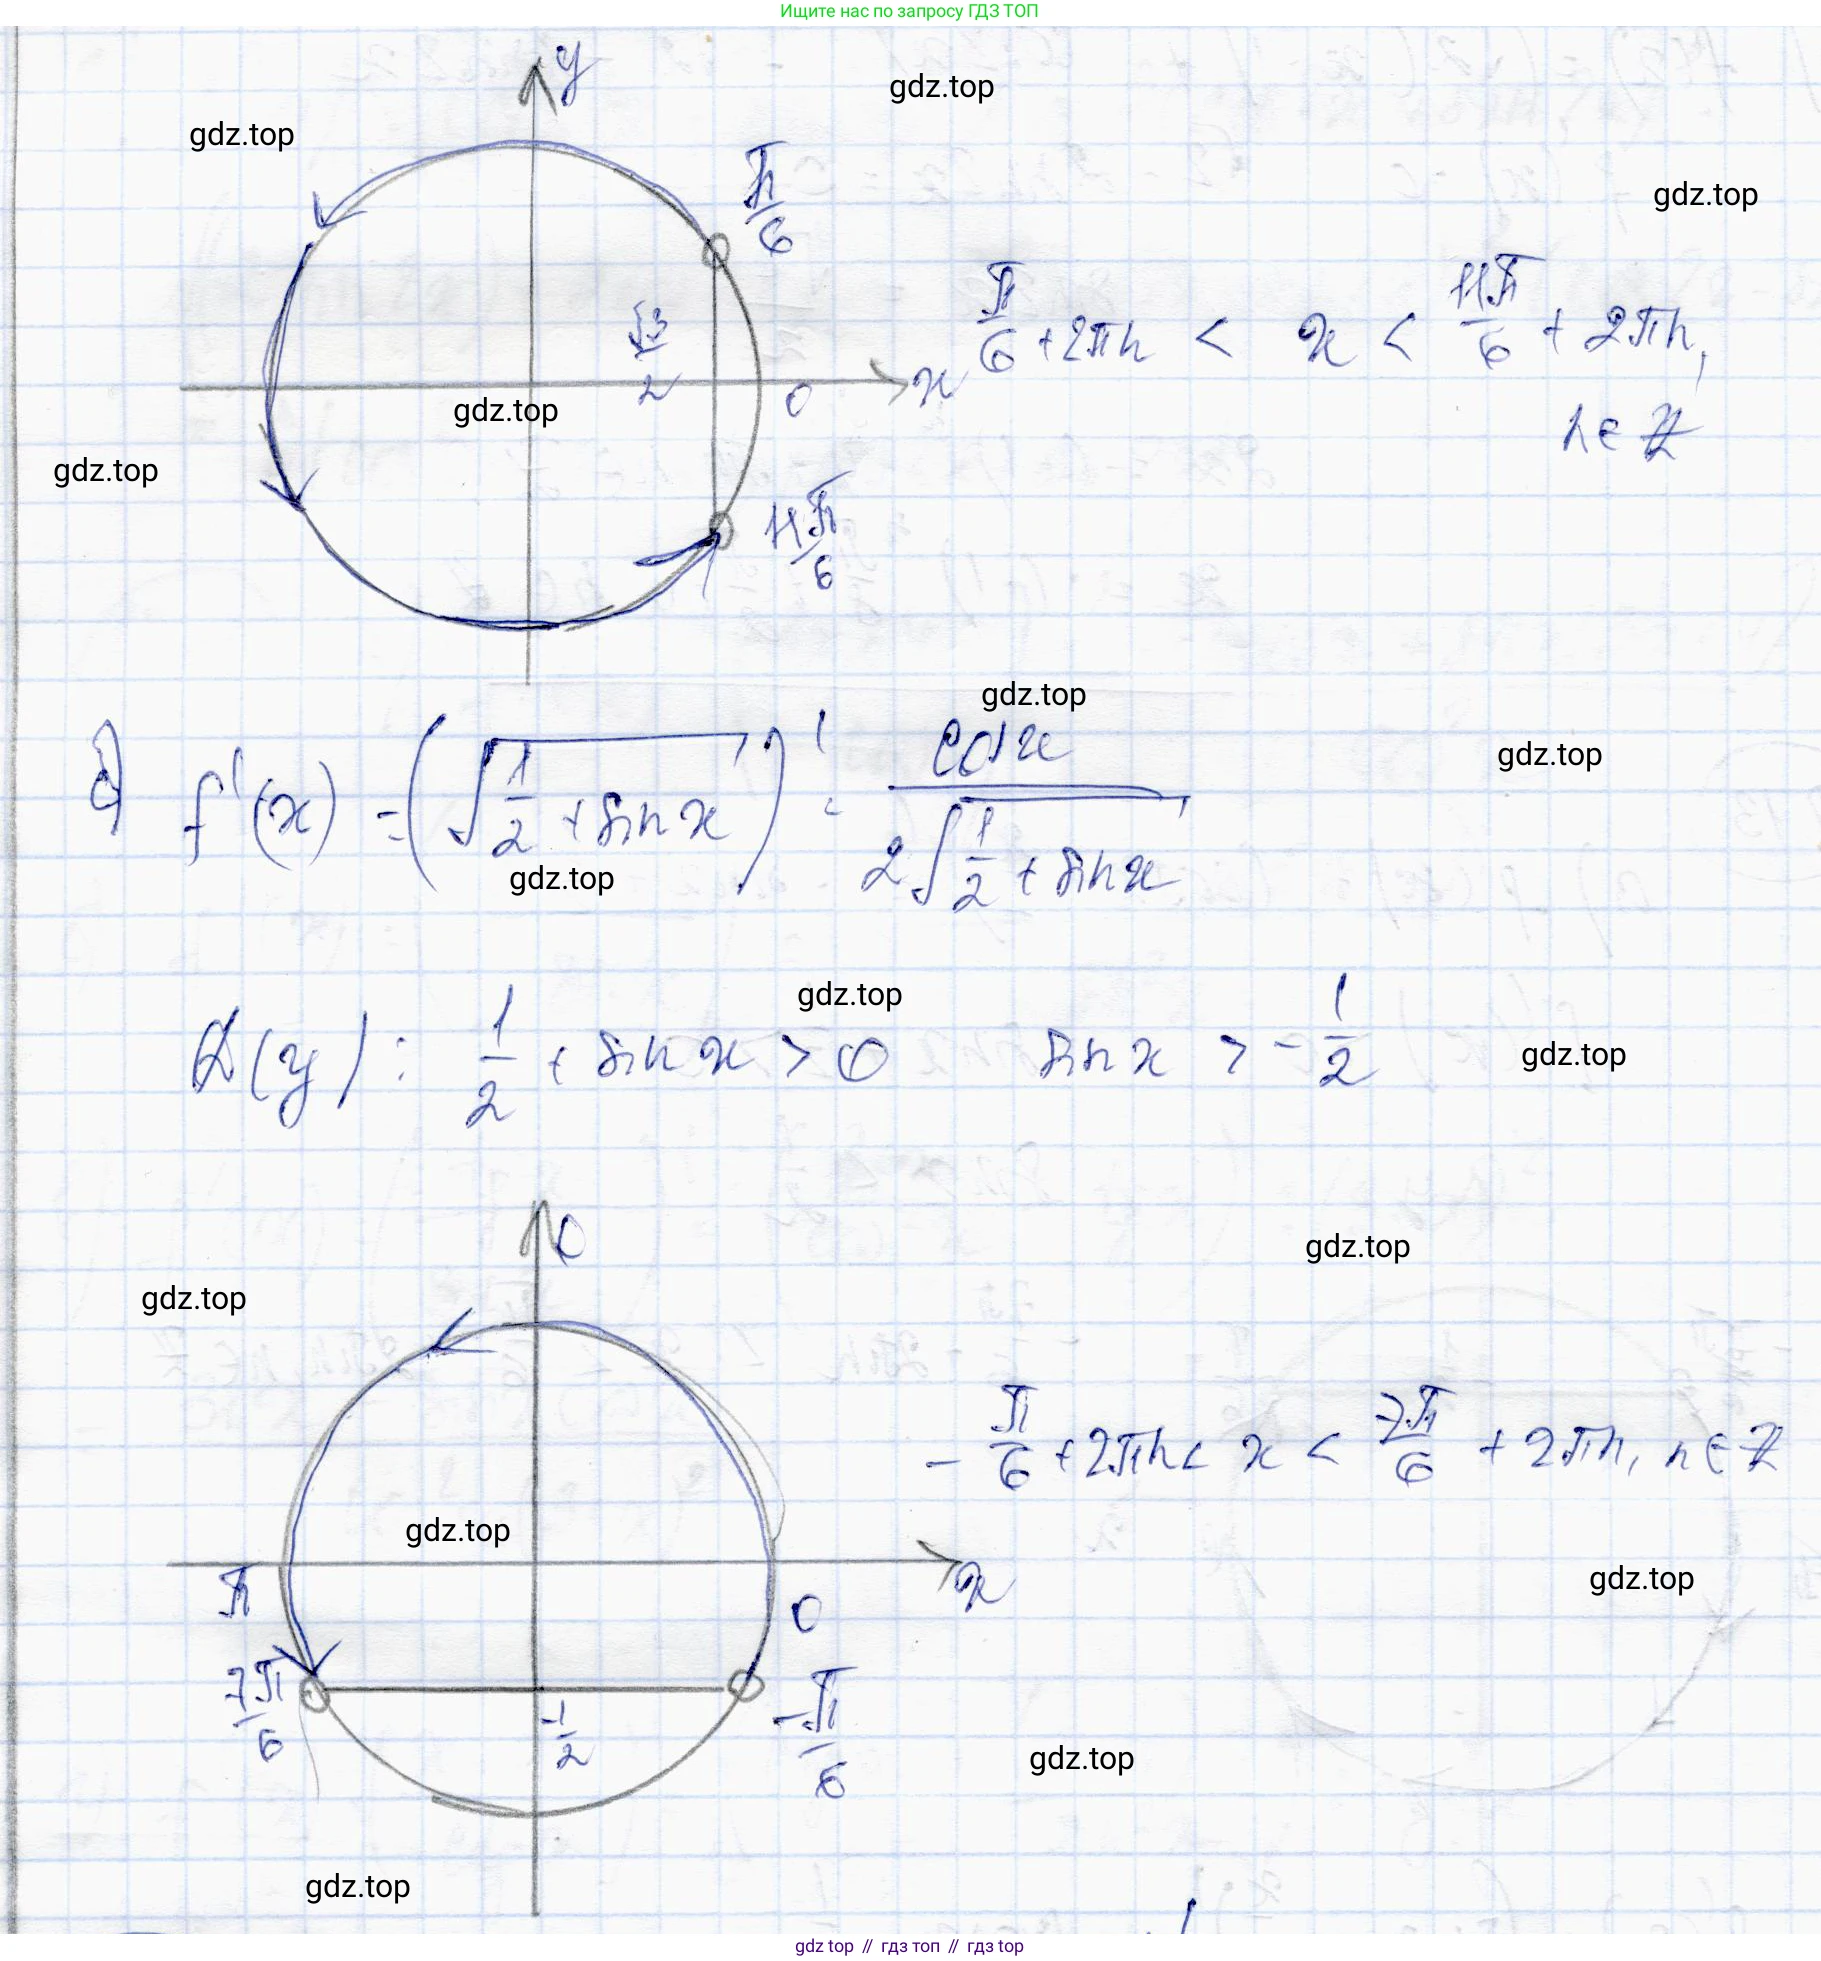 Ищите нас по запросу ГДЗ ТОП
y
gdz.top
gdz.top
π/6
gdz.top
√3/2
π/6 + 2πn < x < 11π/6 + 2πn,
x
0
gdz.top
n ∈ Z
gdz.top
11π/6
gdz.top
f'(x) = (√(1/2 + sin x))' = cos x / (2√(1/2 + sin x))
gdz.top
gdz.top
gdz.top
D(y): 1/2 + sin x > 0 sin x > -1/2
gdz.top
gdz.top
gdz.top
-π/6 + 2πn < x < 7π/6 + 2πn, n ∈ Z
gdz.top
π
x
gdz.top
0
7π/6
-1/2
-π/6
gdz.top
gdz.top
gdz top // гдз топ // гдз top